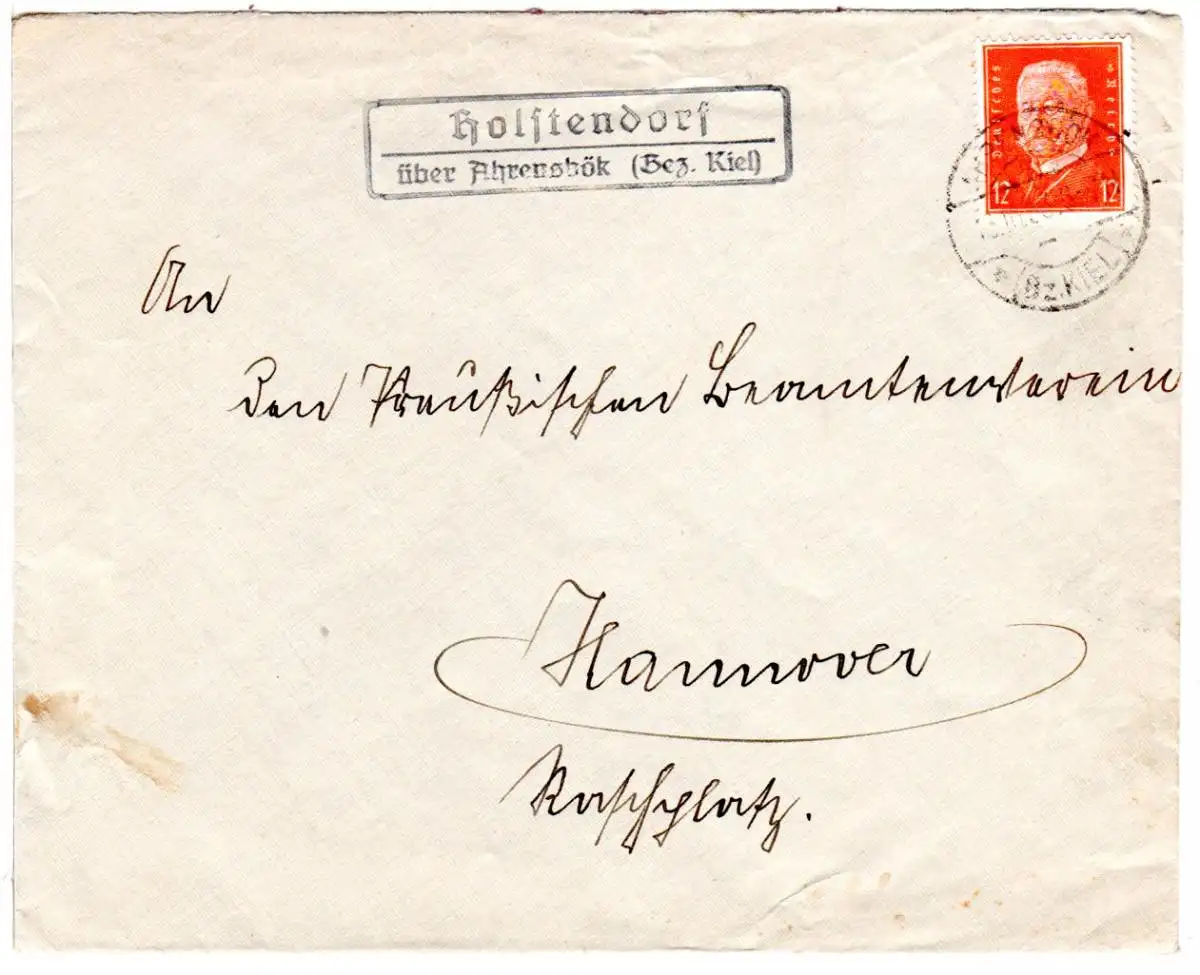 Holstendorf
über Ahrensbök (Bez. Kiel)
Deutsches Reich
12 12
(Bz. KIEL)
An
den Preußischen Beamtenverein
Hannover
Raschplatz.